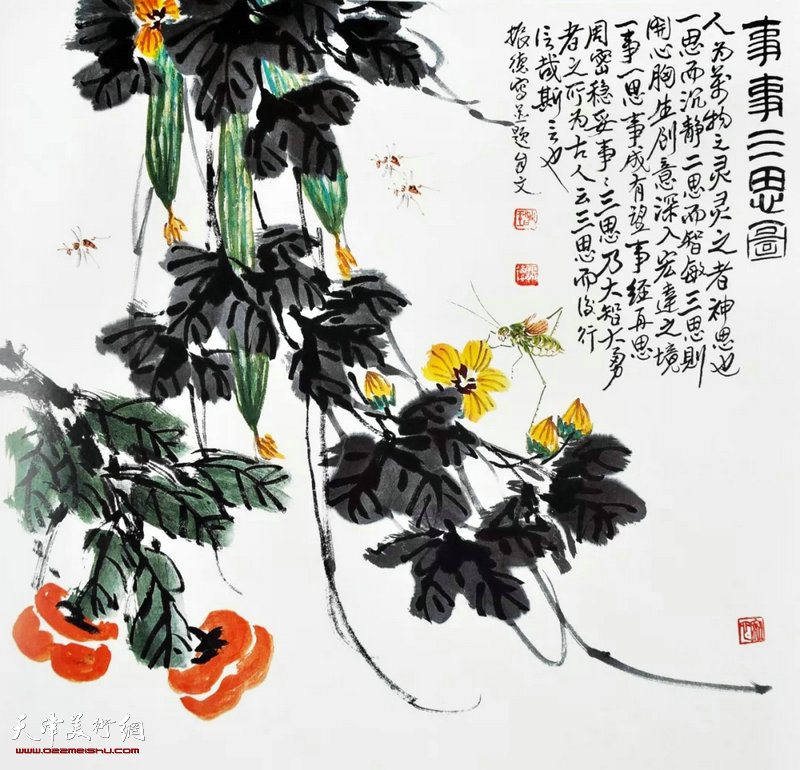 事事三思图
人为万物之灵灵之者神思也
一思而沉静二思而智敏三思则
开心胸生创意深入宏达之境
一事一思事成有望事经再思
周密稳妥事〻三思乃大智大勇
者之所为古人云三思而后行
言哉斯言也
振德写并题自文
天津美术網
www.022meishu.com